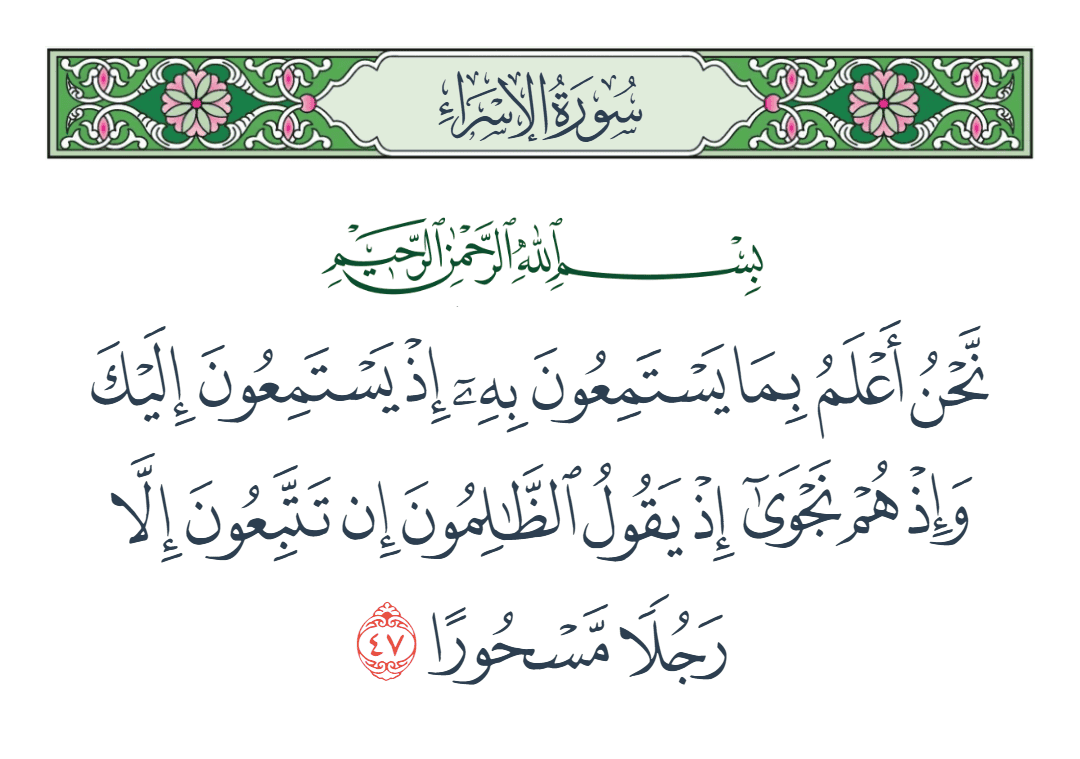 سُورَةُ الإِسْرَاءِ
بِسْمِ ٱللَّهِ ٱلرَّحْمَٰنِ ٱلرَّحِيمِ
نَّحْنُ أَعْلَمُ بِمَا يَسْتَمِعُونَ بِهِۦٓ إِذْ يَسْتَمِعُونَ إِلَيْكَ
وَإِذْ هُمْ نَجْوَىٰٓ إِذْ يَقُولُ ٱلظَّٰلِمُونَ إِن تَتَّبِعُونَ إِلَّا
رَجُلًا مَّسْحُورًا ٤٧